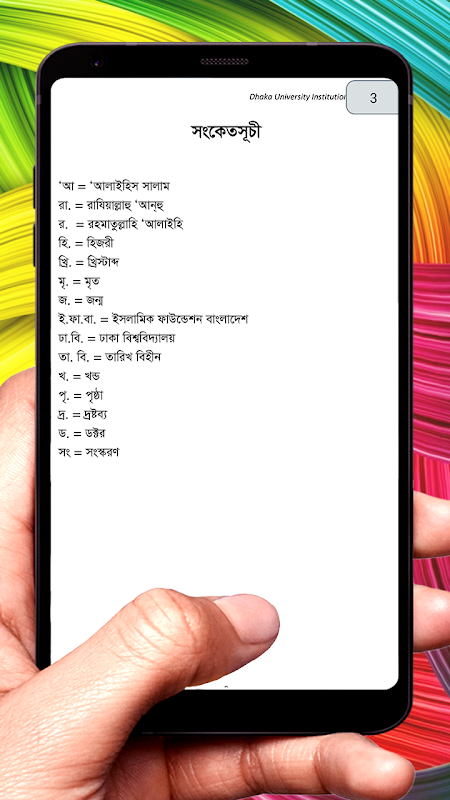 Dhaka University Institution
3
সংকেতসূচী
'আ = 'আলাইহিস সালাম
রা. = রাযিয়াল্লাহু 'আন্হু
র. = রহমাতুল্লাহি 'আলাইহি
হি. = হিজরী
খ্রি. = খ্রিস্টাব্দ
মৃ. = মৃত
জ. = জন্ম
ই.ফা.বা. = ইসলামিক ফাউন্ডেশন বাংলাদেশ
ঢা.বি. = ঢাকা বিশ্ববিদ্যালয়
তা. বি. = তারিখ বিহীন
খ. = খন্ড
পৃ. = পৃষ্ঠা
দ্র. = দ্রষ্টব্য
ড. = ডক্টর
সং = সংস্করণ